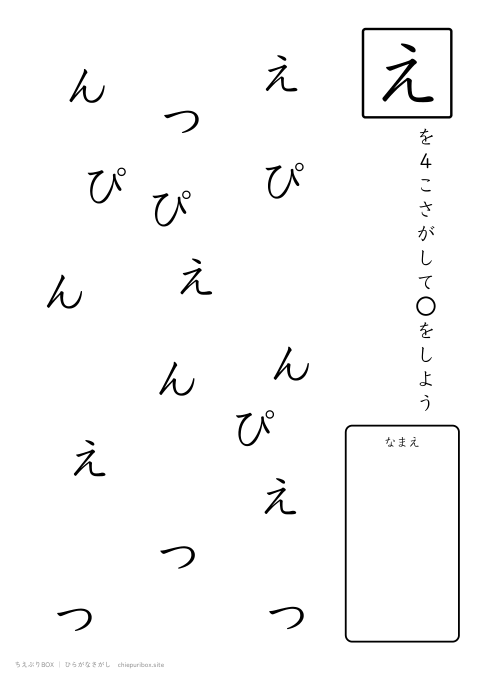 え
を4こさがして〇をしよう
なまえ
え
ん
つ
ぴ
ぴ
ぴ
え
ん
ん
ん
ぴ
え
え
つ
つ
つ
ちえぷりBOX | ひらがなさがし chiepuribox.site